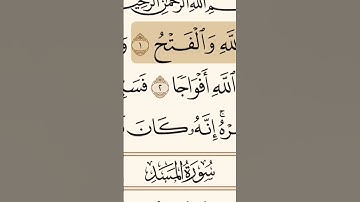 ـمِ اللَّهِ الرَّحْمَٰنِ الرَّحِيمِ
اللَّهِ وَالْفَتْحُ ١
اللَّهِ أَفْوَاجًا ٢ فَسَبِّـ
ـرْهُ ۚ إِنَّهُ كَانَ
سُورَةُ الْمَسَدِ